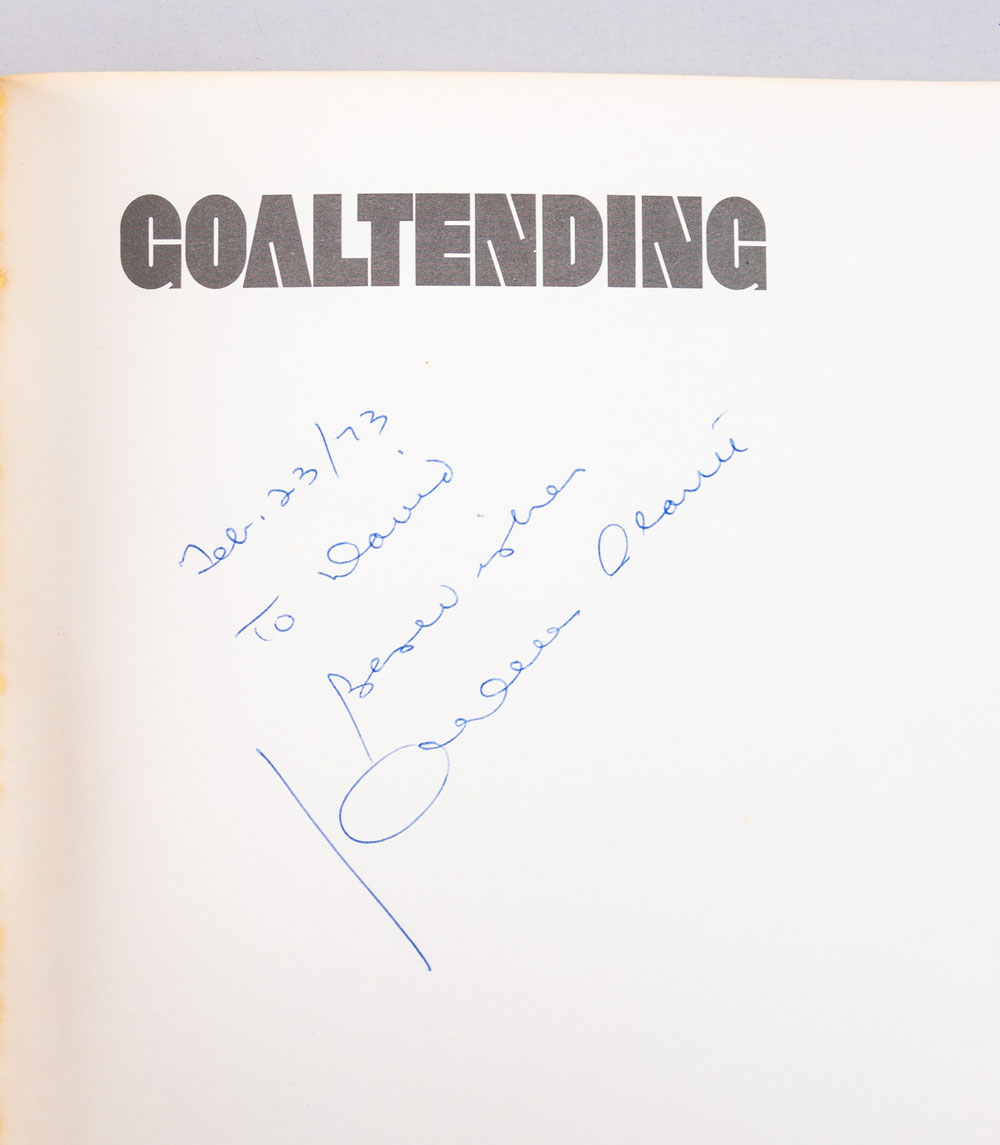 GOALTENDING
Feb. 23/73
To David
Best wishes
Jacques Plante